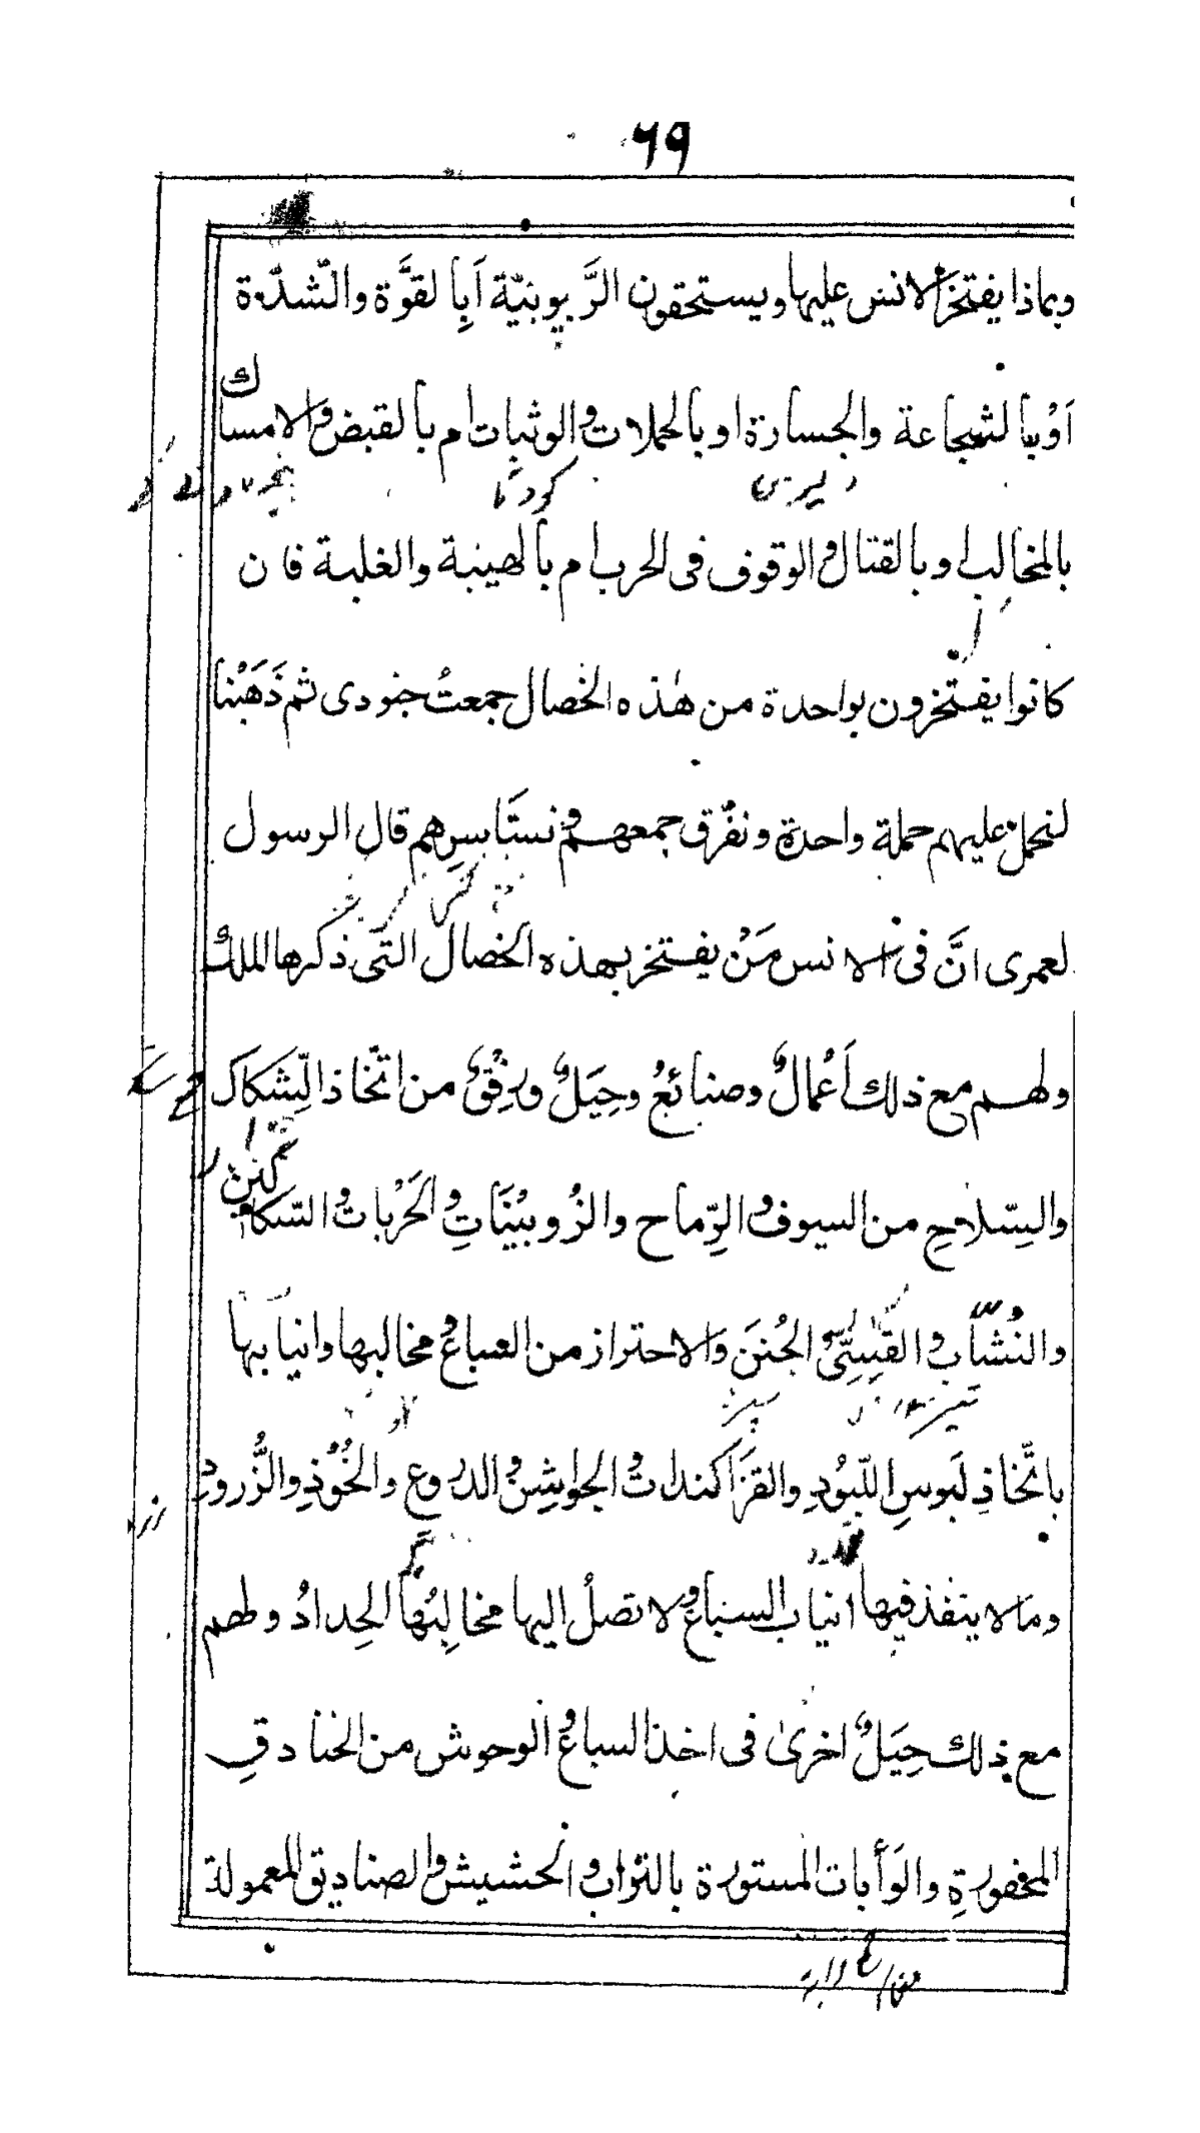 ٦٩
وبماذا يفتخر الانس عليها ويستحقون الرَّبوبيّة اَبِالقوَّة والشّدّة
اَوْ بالشجاعة والجسارة او بالحملات والوثبات ام بالقبض والامساك
دلیری کودنا
بالمخالب او بالقتال والوقوف فى الحرب ام بالهيبة والغلبة فان
كانوا يفتخرون بواحدة من هٰذه الخصال جمعتُ جنودى ثم ذَهَبْنا
لنحمل عليهم حملة واحدة ونفرّق جمعهم ونستَاسِرهم قال الرسول
لعمرى انَّ فى الانس مَنْ يفتخر بهذه الخصال التى ذكرها الملك
ولهم مع ذلك اَعْمالٌ وصنائعُ وحِيَلٌ ورِفْقٌ من اتّخاذ الشِّكاك
والسِّلاحِ من السيوف والرِّماح والزُوبيْنَاتِ والحَرْبات والسّكاكين
والنُشّاب والقِسِّىّ والجُنَن والاحتراز من السباع مخالبها وانيابها
تیر سپر
باتّخاذِ لَبوسِ اللّبُودِ والقزاَكندات والجواشِن والدروع والخُوَذِ والزُّرودِ
وما لا ينفذ فيها انياب السباع ولا تصلُ اليها مخالِبُها الحِدادُ ولهم
مع ذلك حِيَلٌ اخرىٰ فى اخذ السباع والوحوش من الخنادقِ
المحفورةِ والوَأبات المستورة بالتراب والحشيش والصناديق المعمولة